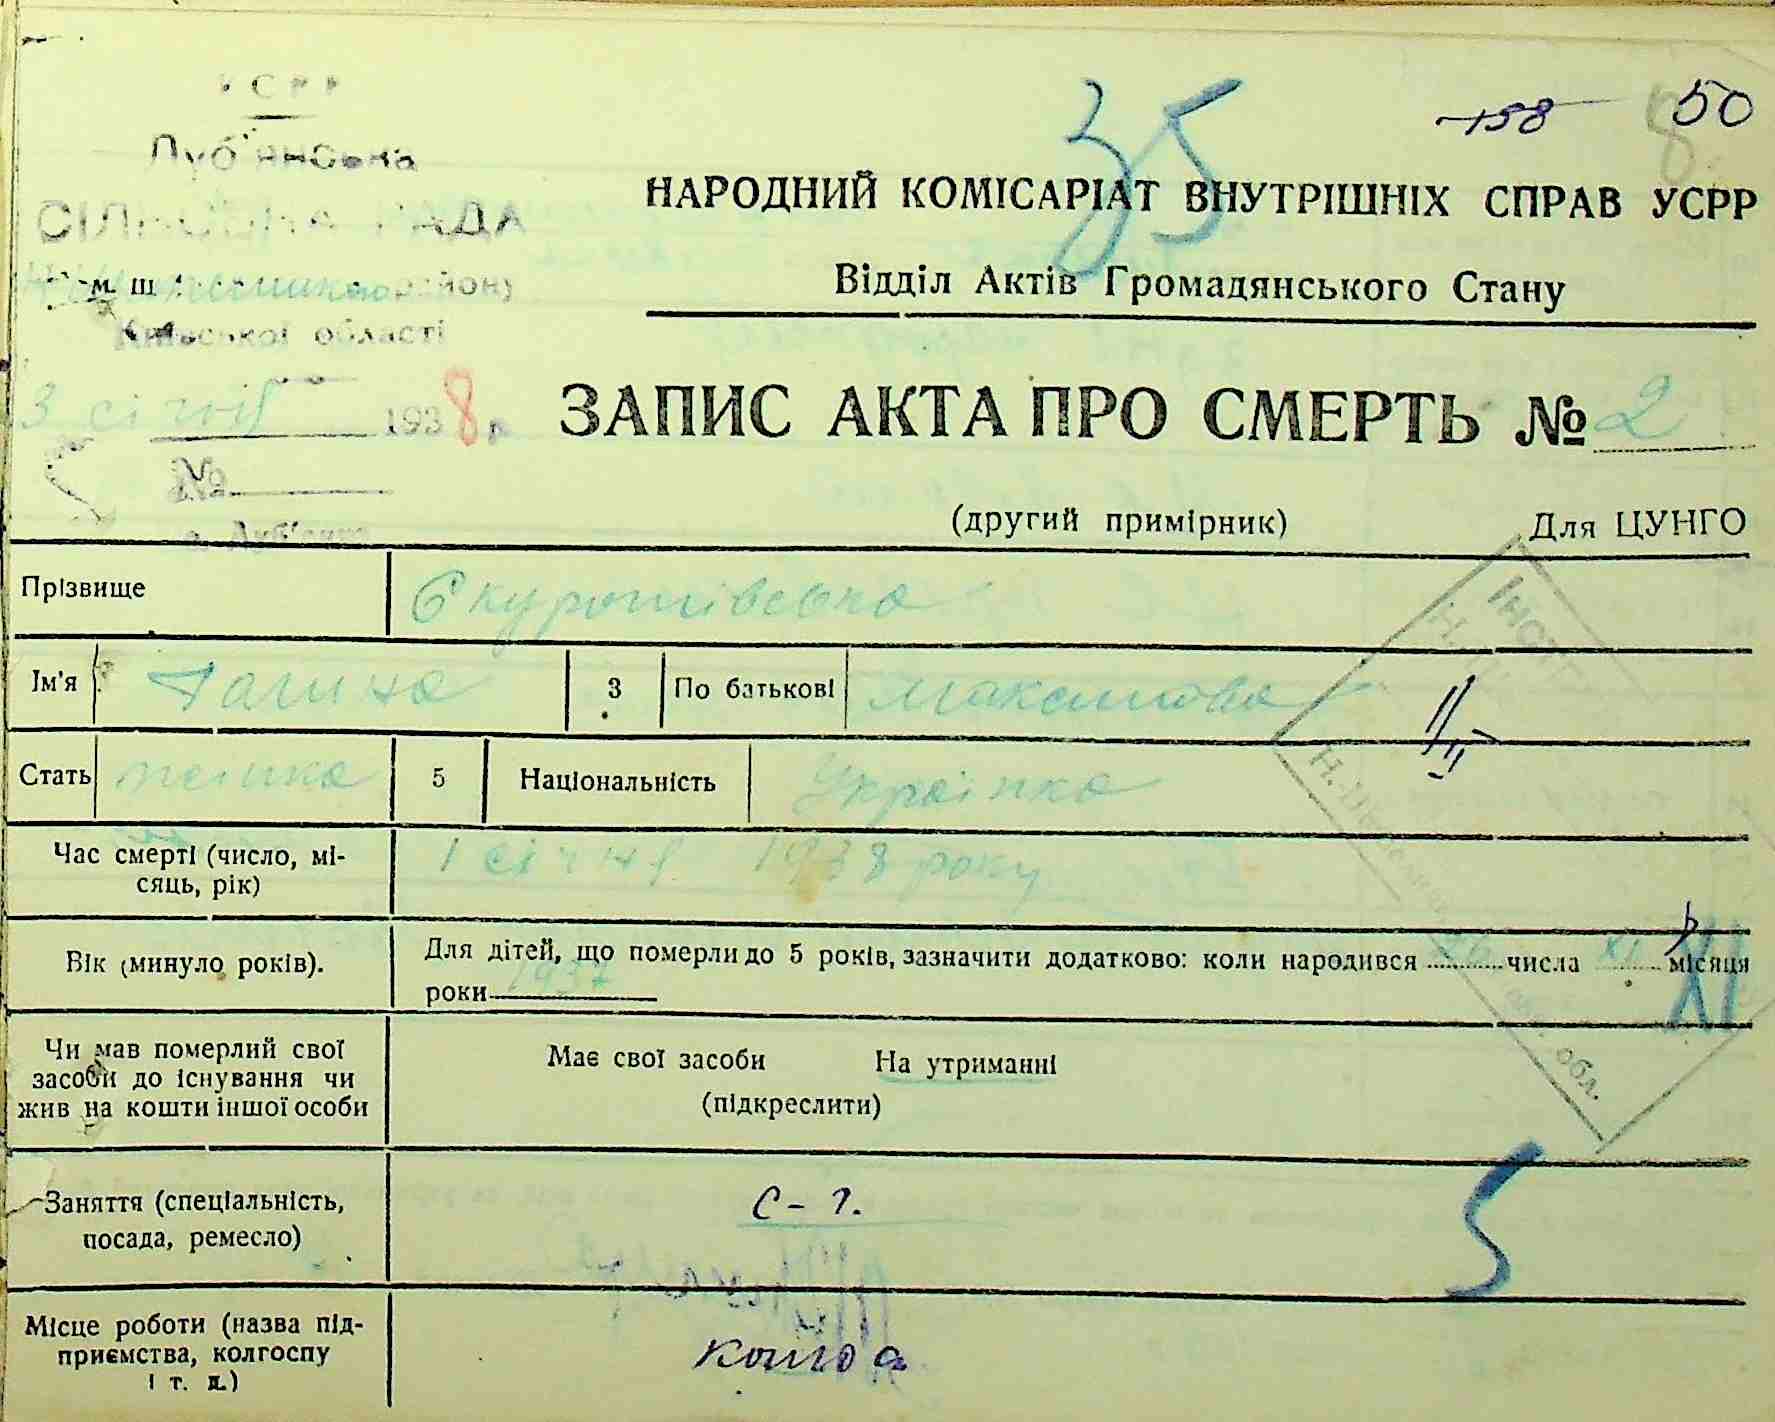 УСРР
Луб'янська
СІЛЬСЬКА РАДА
району
Київської області
3 січня 1938 р.
№
с. Луб'янка
35
158 50
НАРОДНИЙ КОМІСАРІАТ ВНУТРІШНІХ СПРАВ УСРР
Відділ Актів Громадянського Стану
ЗАПИС АКТА ПРО СМЕРТЬ № 2
(другий примірник) Для ЦУНГО
Прізвище
Ім'я Галина 3 По батькові Максимовна
Стать жінка 5 Національність Українка
Час смерті (число, мі-
сяць, рік) 1 січня 1938 року
Вік (минуло років). Для дітей, що померли до 5 років, зазначити додатково: коли народився 26 числа XI місяця
роки 1937
XI
Чи мав померлий свої
засоби до існування чи
жив на кошти іншої особи
Має свої засоби На утриманні
(підкреслити)
Заняття (спеціальність,
посада, ремесло)
С-г.
5
Місце роботи (назва під-
приємства, колгоспу
і т. д.)
обл.